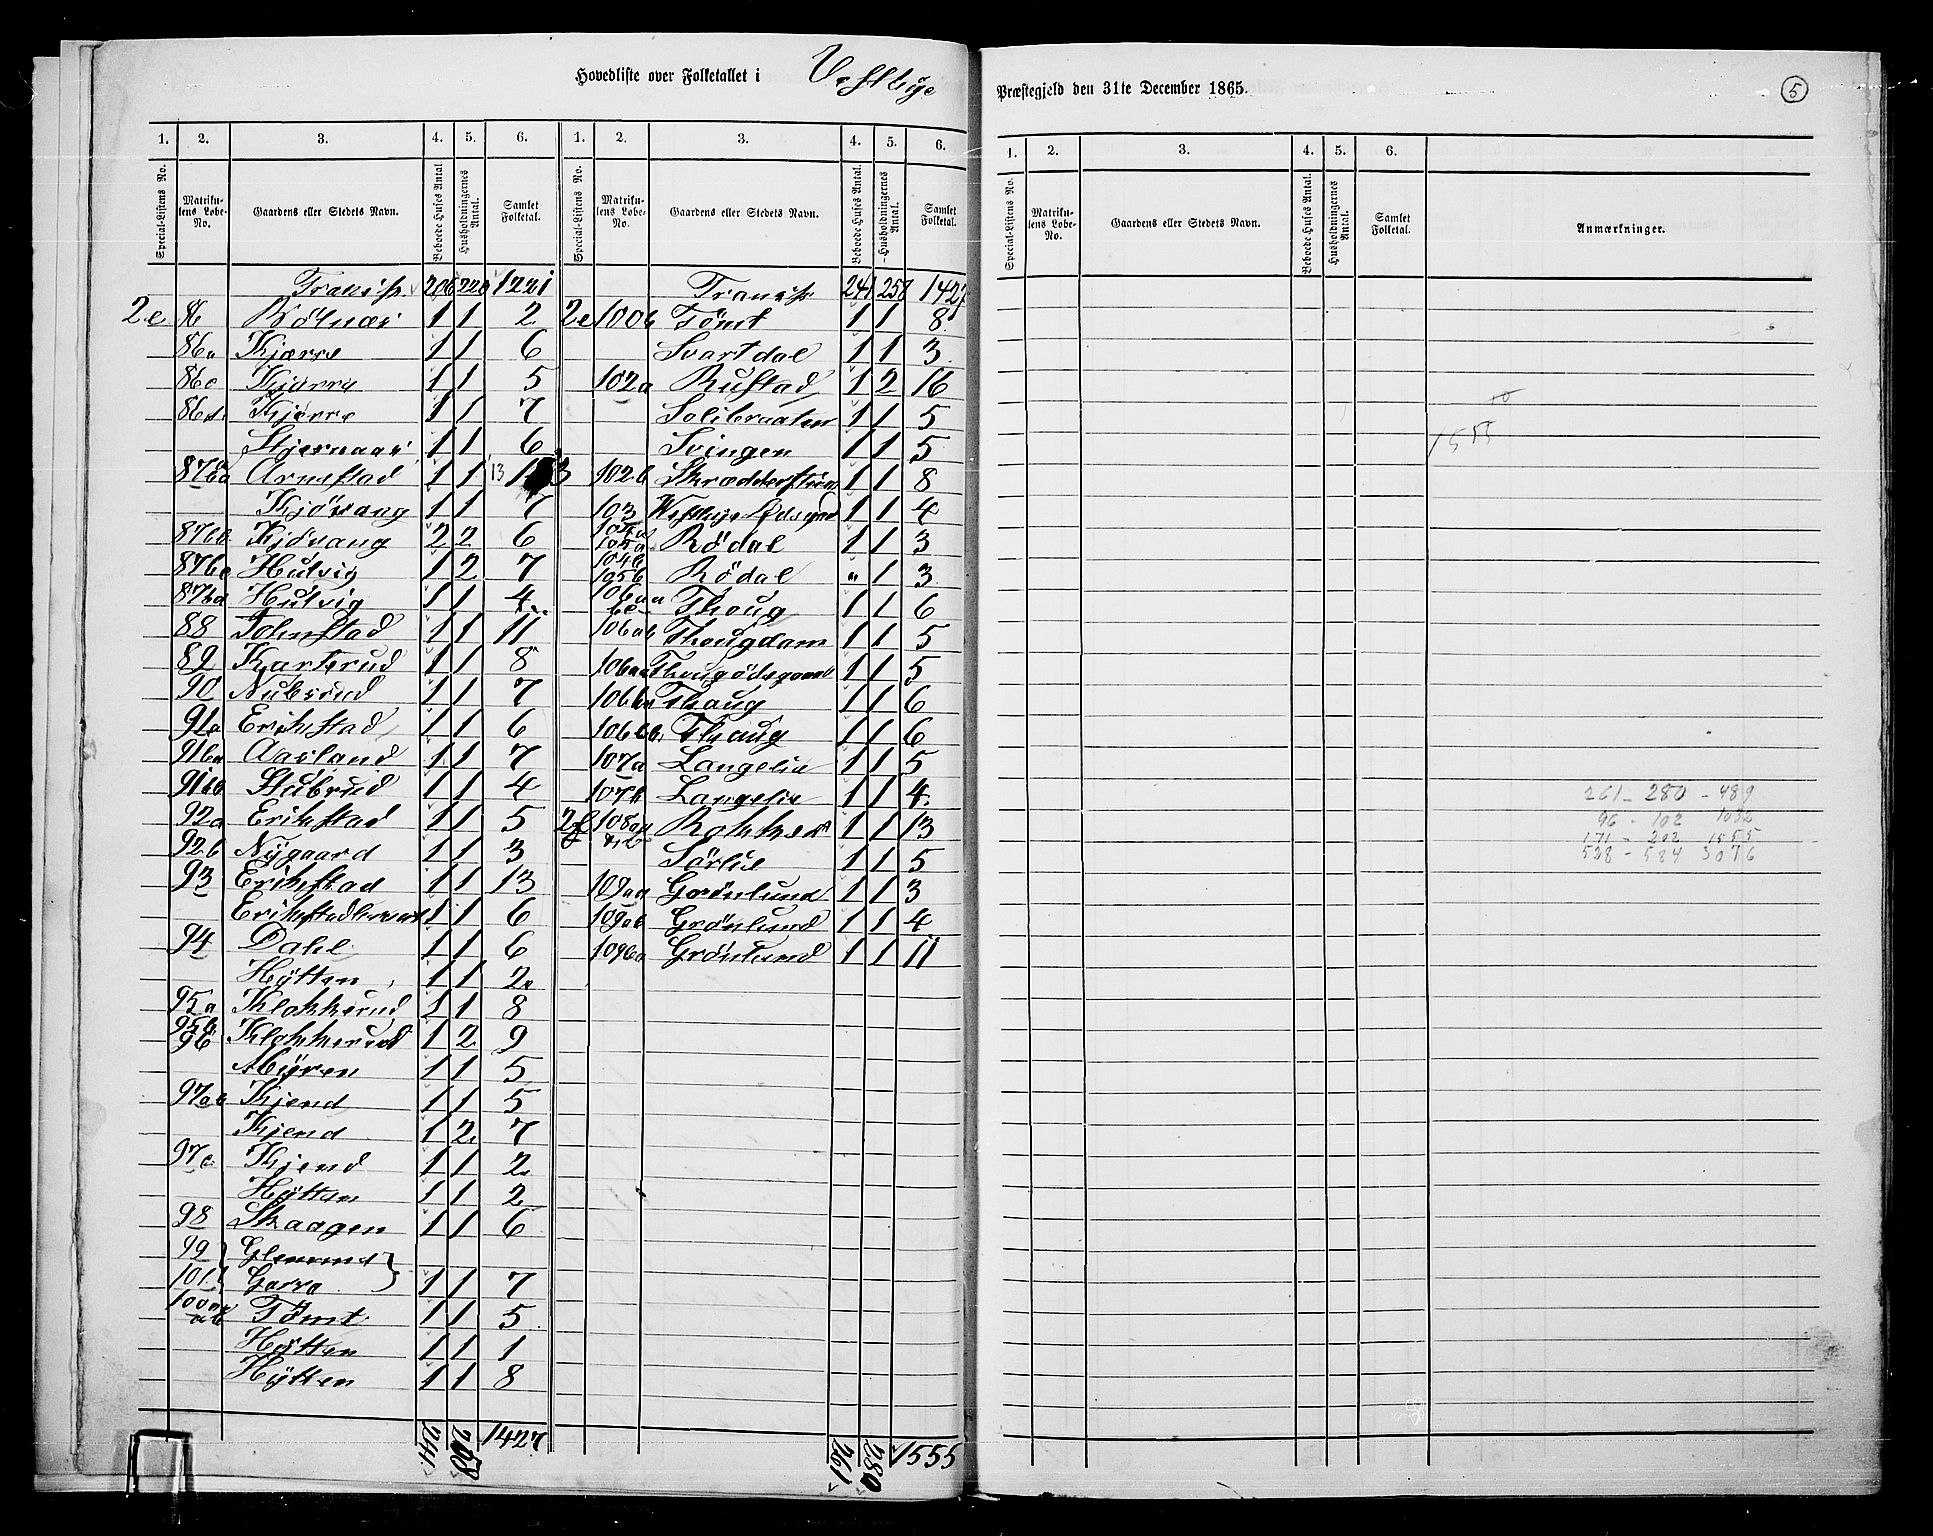 Hovedliste over Folketallet i Vestbye
Præstegjeld den 31te December 1865.
5
1. 2. 3. 4. 5. 6. 1. 2. 3. 4. 5. 6.
Special-Listens No. Matrikulens Løbe-No. Gaardens eller Stedets Navn. Beboede Huses Antal Husholdningernes Antal. Samlet Folketal. Special-Listens No. Matrikulens Løbe-No. Gaardens eller Stedets Navn. Beboede Huses Antal. Husholdningernes Antal. Samlet Folketal.
Transp. 206 220 1221
2e 86 1 1 2
86a Kjærre 1 1 6
86c Kjærre 1 1 5
86d Kjærre 1 1 7
Stjernaas 1 1 6
87ba Arnestad 1 1 13
Kjøvang 1 1 7
87bb Kjøvang 2 2 6
87bc Hulvig 1 2 7
87bd Hulvig 1 1 4
88 Tolnstad 1 1 11
89 Karterud 1 1 8
90 Nubsrud 1 1 7
91a Erikstad 1 1 6
91ba Aasland 1 1 7
91bb Stubrud 1 1 4
92a Erikstad 1 1 5
92b Nygaard 1 1 3
93 Erikstad 1 1 13
Erikstadbraat 1 1 6
94 Dahl 1 1 6
Hytten 1 1 2
95a Klokkerud 1 1 8
95b 96 Klokkerud 1 2 9
Myren 1 1 5
97ab Kjend 1 1 5
Kjend 1 2 7
97c Kjend 1 1 2
Hytten 1 1 2
98 Skaagen 1 1 6
99
101 Garra 1 1 7
100aa ab Tømt 1 1 5
Hytten 1 1 1
Hytten 1 1 8
241 258 1427
Transp 241 258 1427
2e 100b Tømt 1 1 8
Svartdal 1 1 3
102a Rustad 1 2 16
Solibraaten 1 1 5
Svingen 1 1 5
102b Skrædderstuen 1 1 8
103 Vestbye Ødegaard 1 1 4
104a 105a Rødal 1 1 3
104b 105b Rødal " 1 3
106aa bc Thoug 1 1 6
106ab Thougdam 1 1 5
106aa Thougødegaard 1 1 5
106ba Thaug 1 1 6
106bb Thaug 1 1 6
107a Langelie 1 1 5
107b Langelie 1 1 4
2f 108aa Rokker 1 1 13
Sørlie 1 1 5
109aa Grønlund 1 1 3
109ab Grønlund 1 1 4
109ba Grønlund 1 1 11
261 280 1555
1. 2. 3. 4. 5. 6.
Special-Listens No. Matrikulens Løbe-No. Gaardens eller Stedets Navn. Beboede Huses Antal. Husholdningernes Antal. Samlet Folketal. Anmærkninger.
1555
261 - 280 - 489
96 - 102 1032
171 - 202 1555
528 - 584 3076